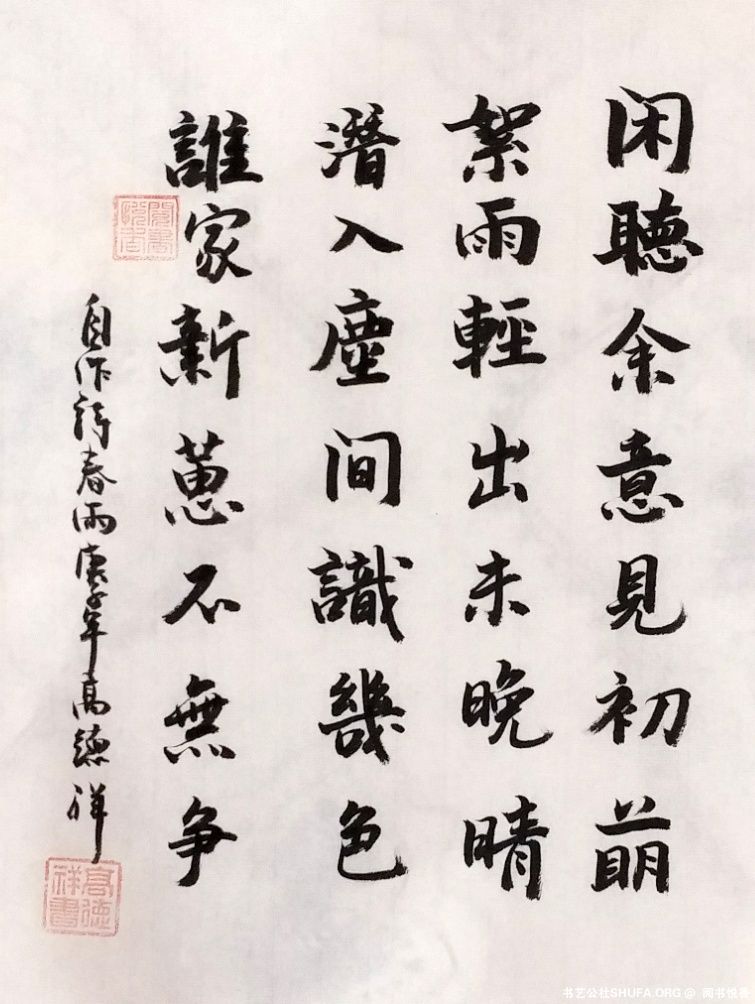 闲聽余意見初萌
絮雨輕出未晚晴
潛入塵間識幾色
誰家新蔥不無争
自作詩春雨庚子年高德祥
閱書悅香
高德祥書
书艺公社SHUFA.ORG @ 阅书悦香